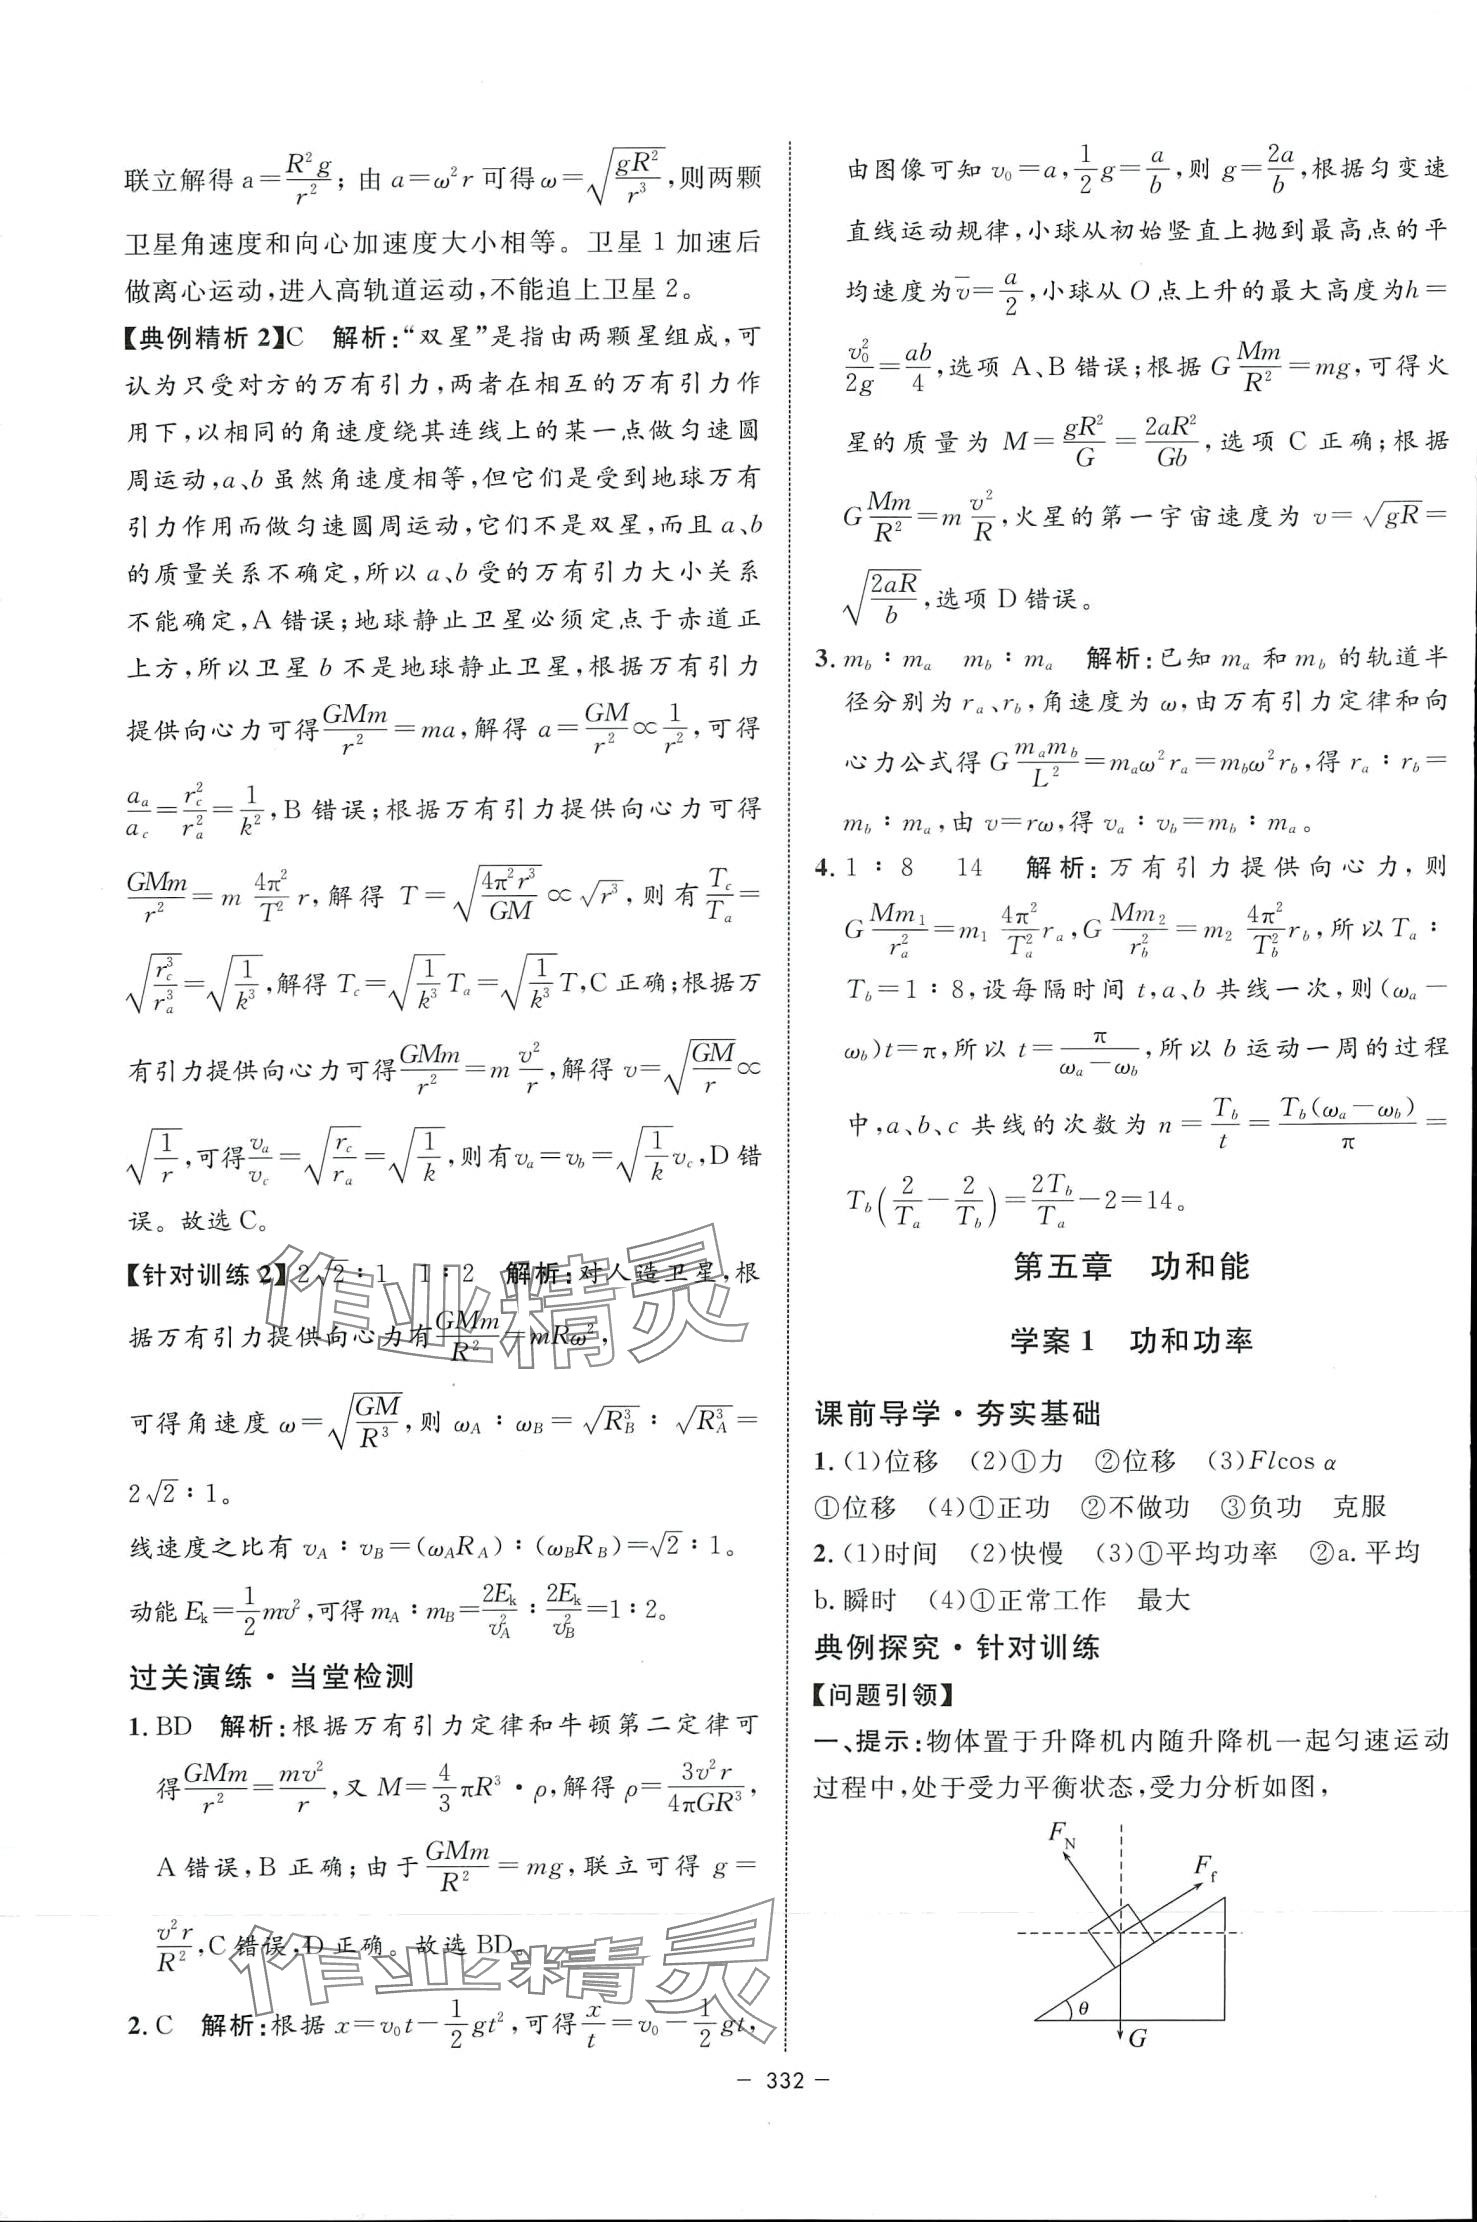 联立解得 a=R²g/r²；由 a=ω²r 可得 ω=√(gR²/r³)，则两颗
卫星角速度和向心加速度大小相等。卫星 1 加速后
做离心运动，进入高轨道运动，不能追上卫星 2。
【典例精析 2】C　解析：“双星”是指由两颗星组成，可
认为只受对方的万有引力，两者在相互的万有引力作
用下，以相同的角速度绕其连线上的某一点做匀速圆
周运动，a、b 虽然角速度相等，但它们是受到地球万有
引力作用而做匀速圆周运动，它们不是双星，而且 a、b
的质量关系不确定，所以 a、b 受的万有引力大小关系
不能确定，A 错误；地球静止卫星必须定点于赤道正
上方，所以卫星 b 不是地球静止卫星，根据万有引力
提供向心力可得 GMm/r²=ma，解得 a=GM/r²∝1/r²，可得
aₐ/a_c=r_c²/rₐ²=1/k²，B 错误；根据万有引力提供向心力可得
GMm/r²=m 4π²/T² r，解得 T=√(4π²r³/GM)∝√r³，则有 T_c/Tₐ=
√(r_c³/rₐ³)=√(1/k³)，解得 T_c=√(1/k³)Tₐ=√(1/k³)T，C 正确；根据万
有引力提供向心力可得 GMm/r²=m v²/r，解得 v=√(GM/r)∝
√(1/r)，可得 vₐ/v_c=√(r_c/rₐ)=√(1/k)，则有 vₐ=v_b=√(1/k)v_c，D 错
误。故选 C。
【针对训练 2】2√2∶1　1∶2　解析：对人造卫星，根
据万有引力提供向心力有 GMm/R²=mRω²，
可得角速度 ω=√(GM/R³)，则 ω_A∶ω_B=√(R_B³)∶√(R_A³)=
2√2∶1。
线速度之比有 v_A∶v_B=(ω_A R_A)∶(ω_B R_B)=√2∶1。
动能 E_k=1/2 mv²，可得 m_A∶m_B=2E_k/v_A²∶2E_k/v_B²=1∶2。
过关演练·当堂检测
1. BD　解析：根据万有引力定律和牛顿第二定律可
得 GMm/r²=mv²/r，又 M=4/3 πR³·ρ，解得 ρ=3v²r/4πGR³，
A 错误，B 正确；由于 GMm/R²=mg，联立可得 g=
v²r/R²，C 错误，D 正确。故选 BD。
2. C　解析：根据 x=v₀t−1/2 gt²，可得 x/t=v₀−1/2 gt，
由图像可知 v₀=a，1/2 g=a/b，则 g=2a/b，根据匀变速
直线运动规律，小球从初始竖直上抛到最高点的平
均速度为 v̄=a/2，小球从 O 点上升的最大高度为 h=
v₀²/2g=ab/4，选项 A、B 错误；根据 G Mm/R²=mg，可得火
星的质量为 M=gR²/G=2aR²/Gb，选项 C 正确；根据
G Mm/R²=m v²/R，火星的第一宇宙速度为 v=√(gR)=
√(2aR/b)，选项 D 错误。
3. m_b∶mₐ　m_b∶mₐ　解析：已知 mₐ 和 m_b 的轨道半
径分别为 rₐ、r_b，角速度为 ω，由万有引力定律和向
心力公式得 G mₐm_b/L²=mₐω²rₐ=m_bω²r_b，得 rₐ∶r_b=
m_b∶mₐ，由 v=rω，得 vₐ∶v_b=m_b∶mₐ。
4. 1∶8　14　解析：万有引力提供向心力，则
G Mm₁/rₐ²=m₁ 4π²/Tₐ² rₐ，G Mm₂/r_b²=m₂ 4π²/T_b² r_b，所以 Tₐ∶
T_b=1∶8，设每隔时间 t，a、b 共线一次，则(ωₐ−
ω_b)t=π，所以 t=π/(ωₐ−ω_b)，所以 b 运动一周的过程
中，a、b、c 共线的次数为 n=T_b/t=T_b(ωₐ−ω_b)/π=
T_b(2/Tₐ−2/T_b)=2T_b/Tₐ−2=14。
第五章　功和能
学案 1　功和功率
课前导学·夯实基础
1. (1)位移　(2)①力　②位移　(3)Flcos α
①位移　(4)①正功　②不做功　③负功　克服
2. (1)时间　(2)快慢　(3)①平均功率　②a. 平均
b. 瞬时　(4)①正常工作　最大
典例探究·针对训练
【问题引领】
一、提示：物体置于升降机内随升降机一起匀速运动
过程中，处于受力平衡状态，受力分析如图，
F_N
F_f
θ
G
作业精灵
作业精灵
－ 332 －